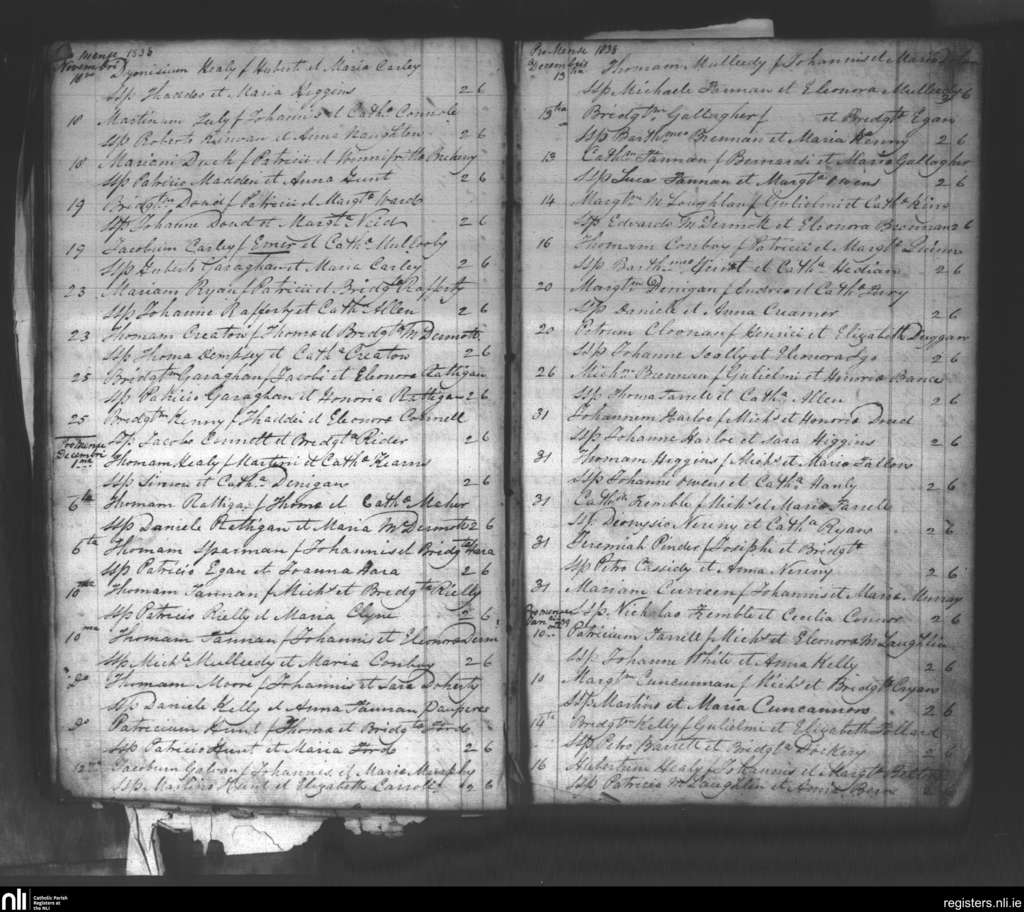 Pro Mense 1838
Novembris
18 Dyonisium Healy f Huberti et Maria Carley
Ssp Thaddeo et Maria Higgins 2 6
18 Martinum f Johannis et Cathe Connole
Ssp Roberto Kirwan et Anna Naughten 2 6
18 Duck f Patricii et
Ssp Patricio Madden et Anna Hunt 2 6
19 Bridgtm Dowd f Patricii et Margte Ward
Ssp Johanne Dowd et Margta 2 6
19 Jacobum Carley f Emer et Catha Mullooly
Ssp Huberto Garaghan et Maria Carley 2 6
23 Mariam Ryan f Patricii et Bridgte Rafferty
Ssp Johanne Rafferty et Catha Allen 2 6
23 Thomam Creaton f Thoma et Bridgta McDermott
Ssp Thoma Dempsey et Catha Creaton 2 6
25 Bridgtm Garaghan f Jacobi et Eleonora Rattigan
Ssp Patricio Garaghan et Honoria Rattigan 2 6
25 Bridgtm Kenny f Thaddei et Eleonore Connell
Ssp Jacobo Connell et Bridgta Rider 2 6
Pro Mense
Decembri
1ma Thomam Healy f Martini et Catha Kearns
Ssp Simon et Catha Denigan 2 6
6ta Thomam Rattigan f Thoma et Catha Maher
Ssp Daniele Rattigan et Maria McDermott 2 6
6ta Thomam Sparman f Johannis et Bridgta Hara
Ssp Patricio Egan et Joanna Hara 2 6
10ma Thomam Fannan f Michs et Bridgta Rielly
Ssp Patricio Rielly et Maria Clyne 2 6
10ma Thomam Fannan f Johannis et Eleonora
Ssp Michle Mulleedy et Maria Conboy 2 6
Do Thomam Moore f Johannis et Sara Doherty
Ssp Daniele Kelly et Anna Fannan Pauperes
Do Patricium Hunt f Thoma et Bridgta Ford
Ssp Patricio Hunt et Maria Ford 2 6
12ma Jacobum Galvan f Johannes et Maria Murphy
Ssp Martino Hunt et Elizabeth Carroll 2 6
Pro Mense 1838
Decembris
13 Thomam Mulleedy f Johannis et Maria
Ssp Michaele Fannan et Eleonora Mulleedy 2 6
13ta Bridgtm Gallagher f et Bridgta Egan
Ssp Barthmeo Brennan et Maria Kenny 2 6
13 Cathm Fannan f Bernardi et Maria Gallagher
Ssp Luca Fannan et Margta Owens 2 6
14 Margtm McLoughlan f Gulielmi et Catha
Ssp Edwardo McDermott et Elionora Brennan 2 6
16 Thomam Conboy f Patricii et Margta
Ssp Barthmeo et Catha Hedian 2 6
20 Margtm Denigan f Andrea et Catha
Ssp Daniele et Anna Creamer 2 6
20 Petrum Cloonan f Henrici et Elizabeth
Ssp Johanne Scally et Elenora 2 6
26 Michm Brennan f Gulielmi et Honoria
Ssp Thoma Farrell et Catha Allen 2 6
31 Johannem Harloe f Michs et Honoria
Ssp Johanne Harloe et Sara Higgins 2 6
31 Thomam Higgins f Michs et Maria Fallons
Ssp Johanne Owens et Catha Hanly 2 6
31 Cathm Kemble f Michs et Maria Farrell
Ssp Dionysio Nerney et Catha Ryans 2 6
31 Jeremiah Pinder f Josiphi et Bridgta
Ssp Petro Cassidy et Anna Nerney 2 6
31 Mariam Curreen f Johannis et Maria Murray
Ssp Nicholao Kemble et Cecelia Connor 2 6
Pro Mense
Jan 1839
10 Patricium Farrell f Michs et Eleonora McLaughlin
Ssp Johanne White et Anna Kelly 2 6
10 Margtm Cuncannan f Michs et Bridgta Cryans
Ssp Martino et Maria Cuncannon 2 6
14ta Bridgtm Kelly f Gulielmi et Elizabeth Pollard
Ssp Petro Barrett et Bridgta Dockery 2 6
16 Hubertum Healy f Johannis et Margta
Ssp Patricio McLaughlin et Anna
nli
Catholic Parish
Registers at
the NLI
registers.nli.ie